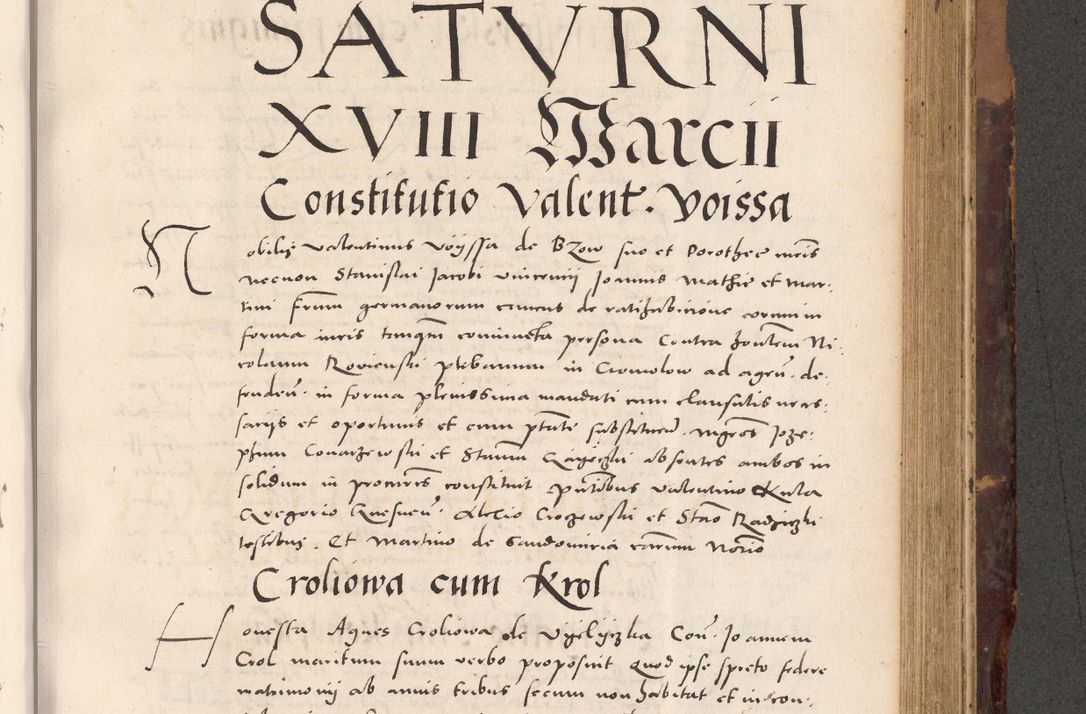 SATVRNI
XVIII Marcii
Constitutio Valent. Voissa
Nobilis Valentinus Voyssa de Bzow suo et Dorothee mris
necnon Stanislai Jacobi Vincencii Joannis Mathie et Mar-
tini frum germanorum de ratihabicione eorum in
forma iuris tanqm coniuncta persona Contra honlem Ni-
colaum Rovienski plebanum in Cromolow ad agen. de-
fenden. in forma plenissima mandati cum clausulis neces-
sariis et oportunis et cum ptate substituen. mgros Joze-
phum Conarzewski et Stanm absentes ambos in
solidum in procures constituit pntibus Valentino Kula
Gregorio Alexio Croczewski et Stao Radziczki
testibus. Et Martino de Sandomiria Norio
Croliowa cum Krol
Honesta Agnes Croliowa de Con. Joannem
Crol maritum suum verbo proposuit Quod ipse spreto federe
matrimonii ab annis tribus secum non habitat et in con-